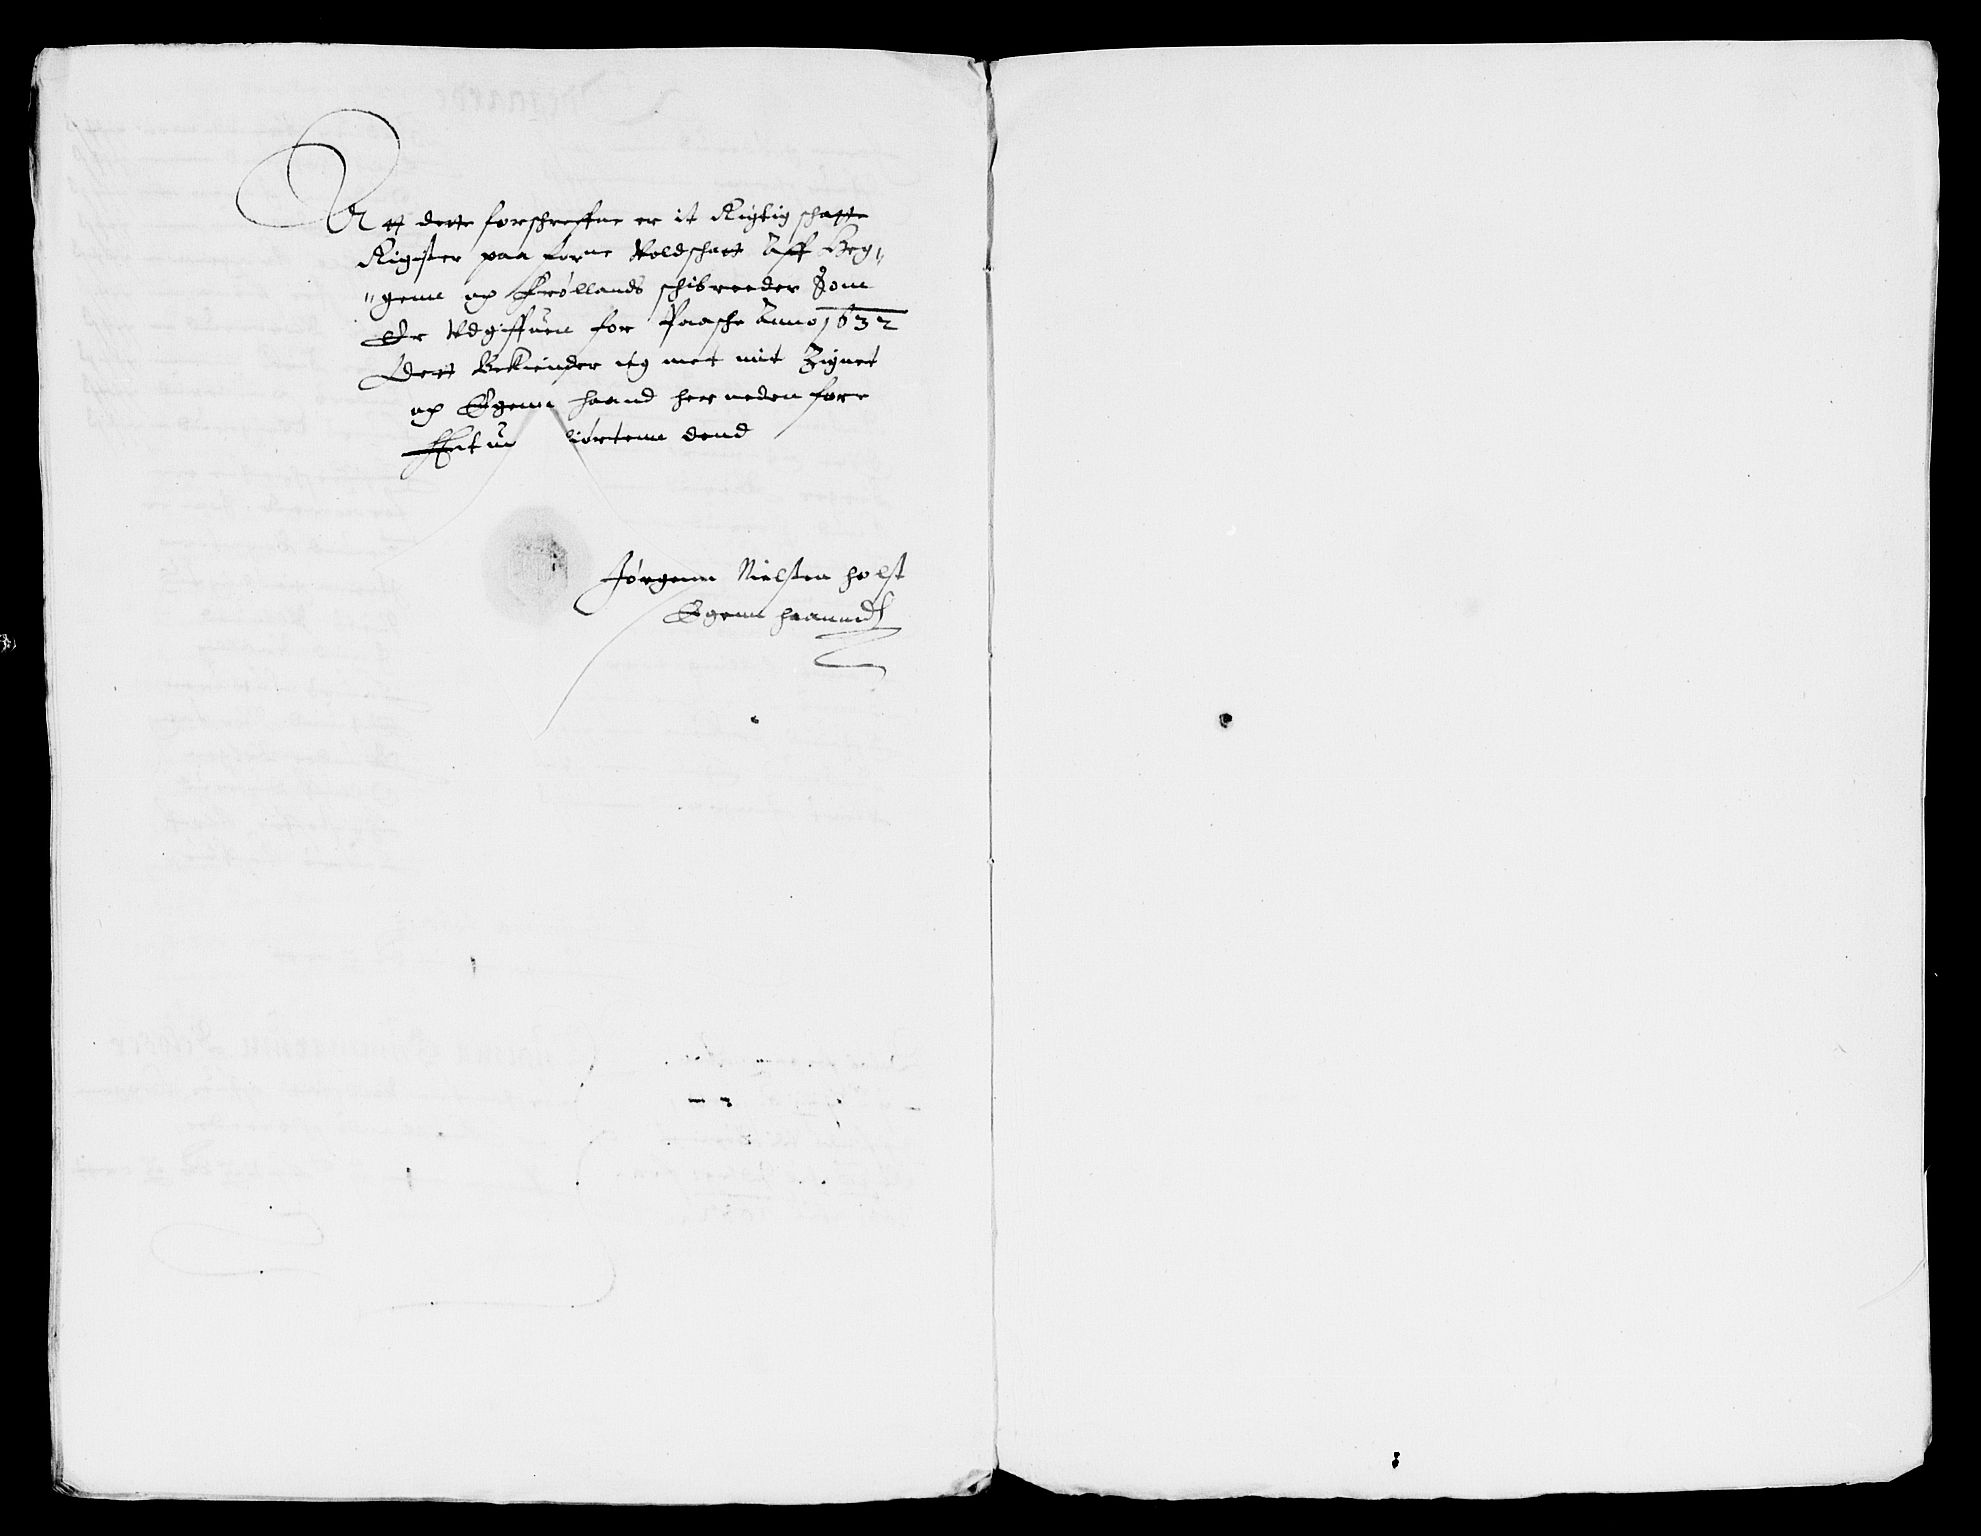 Att dette forschreffne er it Rigtig schatte
Rigister paa forne Koldschatt Aff Beg„
„genn og Frøllands schibreeder Som
Er Udgiffuen for Paasche Anno 1632
Dett Bekiender ieg met mit Zignet
og Egenn haand her neden forre
Actum dend
Jørgenn Nielsen holst
Egenn haannd